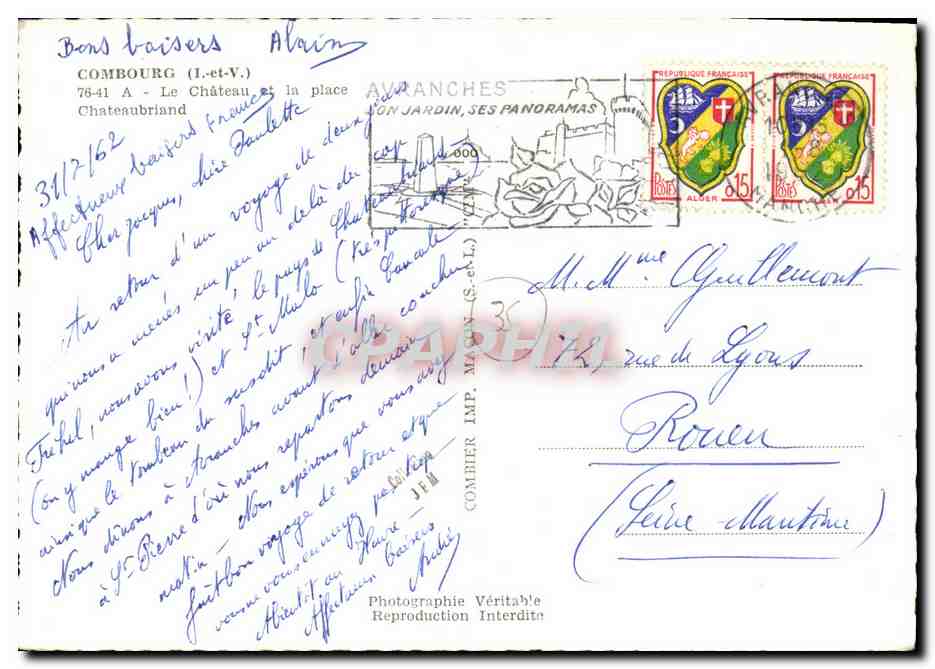 Bons baisers Alain
COMBOURG (I.-et-V.)
76-41 A - Le Château et la place
Chateaubriand
31/7/62
Affectueux baisers France
Cher Jacques, chère Paulette
Au retour d'un voyage de deux jours
qui nous a menés un peu au delà du cap
Fréhel, nous avons visité le pays de Chateaubriand
(on y mange bien!) et St Malo (très
ainsi que le tombeau du susdit! et enfin Cancale
Nous dînons à Avranches avant d'aller coucher
à St Pierre d'où nous repartons demain
matin - Nous espérons que vous avez
fait bon voyage de retour et que
vous ne vous ennuyez pas trop
A bientôt au Havre -
Affectueux baisers
André
Photographie Véritable
Reproduction Interdite
COMBIER IMP. MACON (S.-et-L.) "CIM"
35
AVRANCHES
SON JARDIN, SES PANORAMAS
REPUBLIQUE FRANÇAISE
POSTES
0,15
ALGER
REPUBLIQUE FRANÇAISE
POSTES
0,15
ALGER
AVRANCHES
MANCHE
M. Mme Guillemont
72, rue de Lyons
Rouen
(Seine-Maritime)
CPAPHIL
JFM